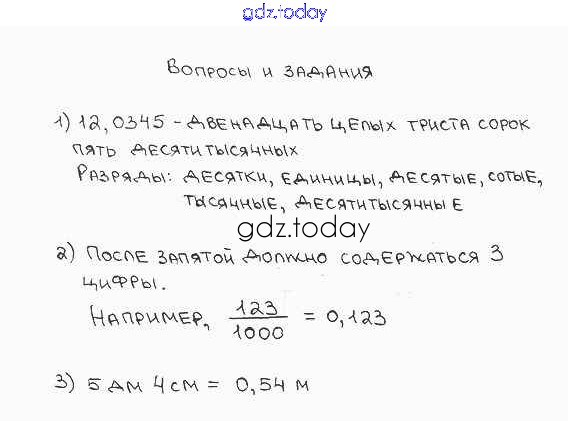 gdz.today
Вопросы и задания
1) 12,0345 - двенадцать целых триста сорок
пять десятитысячных
Разряды: десятки, единицы, десятые, сотые,
тысячные, десятитысячные
gdz.today
2) После запятой должно содержаться 3
цифры.
Например, 123/1000 = 0,123
3) 5 дм 4 см = 0,54 м